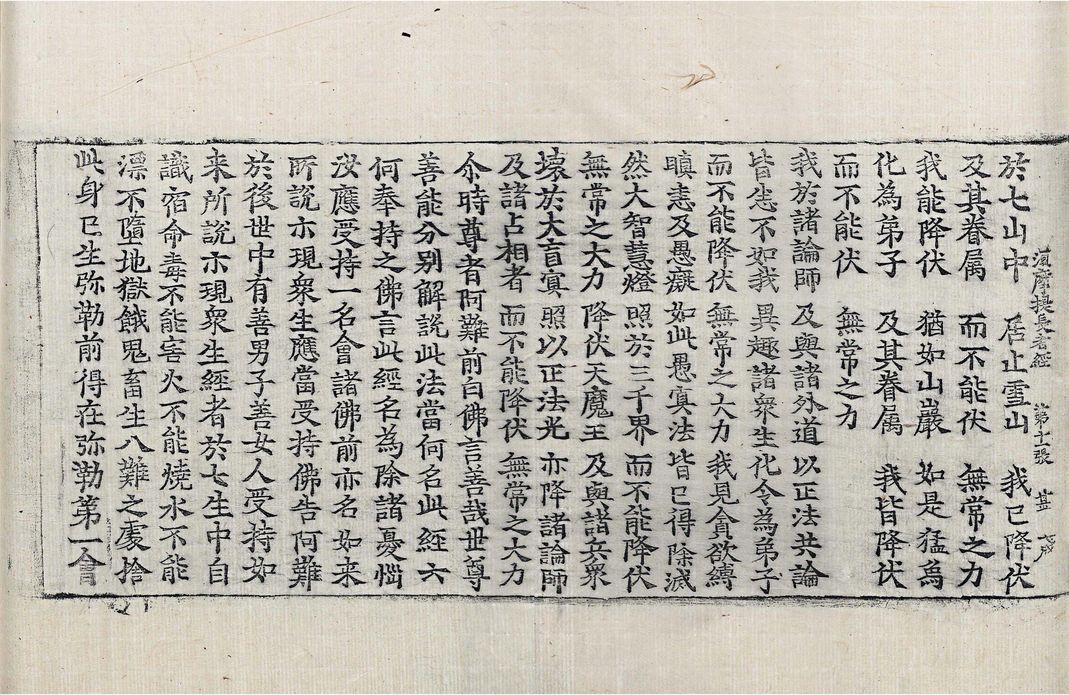 須摩提長者經 第十一張 甚
於七山中 居止雪山 我已降伏
及其眷属 而不能伏 無常之力
我能降伏 猶如山巖 如是猛為
化為弟子 及其眷属 我皆降伏
而不能伏 無常之力
我於諸論師 及與諸外道 以正法共論
皆悉不如我 異趣諸衆生 化令為弟子
而不能降伏 無常之大力 我見貪欲縛
瞋恚及愚癡 如此愚冥法 皆已得除滅
然大智慧燈 照於三千界 而不能降伏
無常之大力 降伏天魔王 及與諸兵衆
壞於大盲冥 照以正法光 亦降諸論師
及諸占相者 而不能降伏 無常之大力
尒時尊者阿難前白佛言善哉世尊
善能分别解說此法當何名此經云
何奉持之佛言此經名為除諸憂惱
汝應受持一名會諸佛前亦名如来
所說示現衆生應當受持佛告阿難
於後世中有善男子善女人受持如
来所說示現衆生經者於七生中自
識宿命毒不能害火不能燒水不能
漂不墮地獄餓鬼畜生八難之處捨
此身已生弥勒前得在弥勒第一會